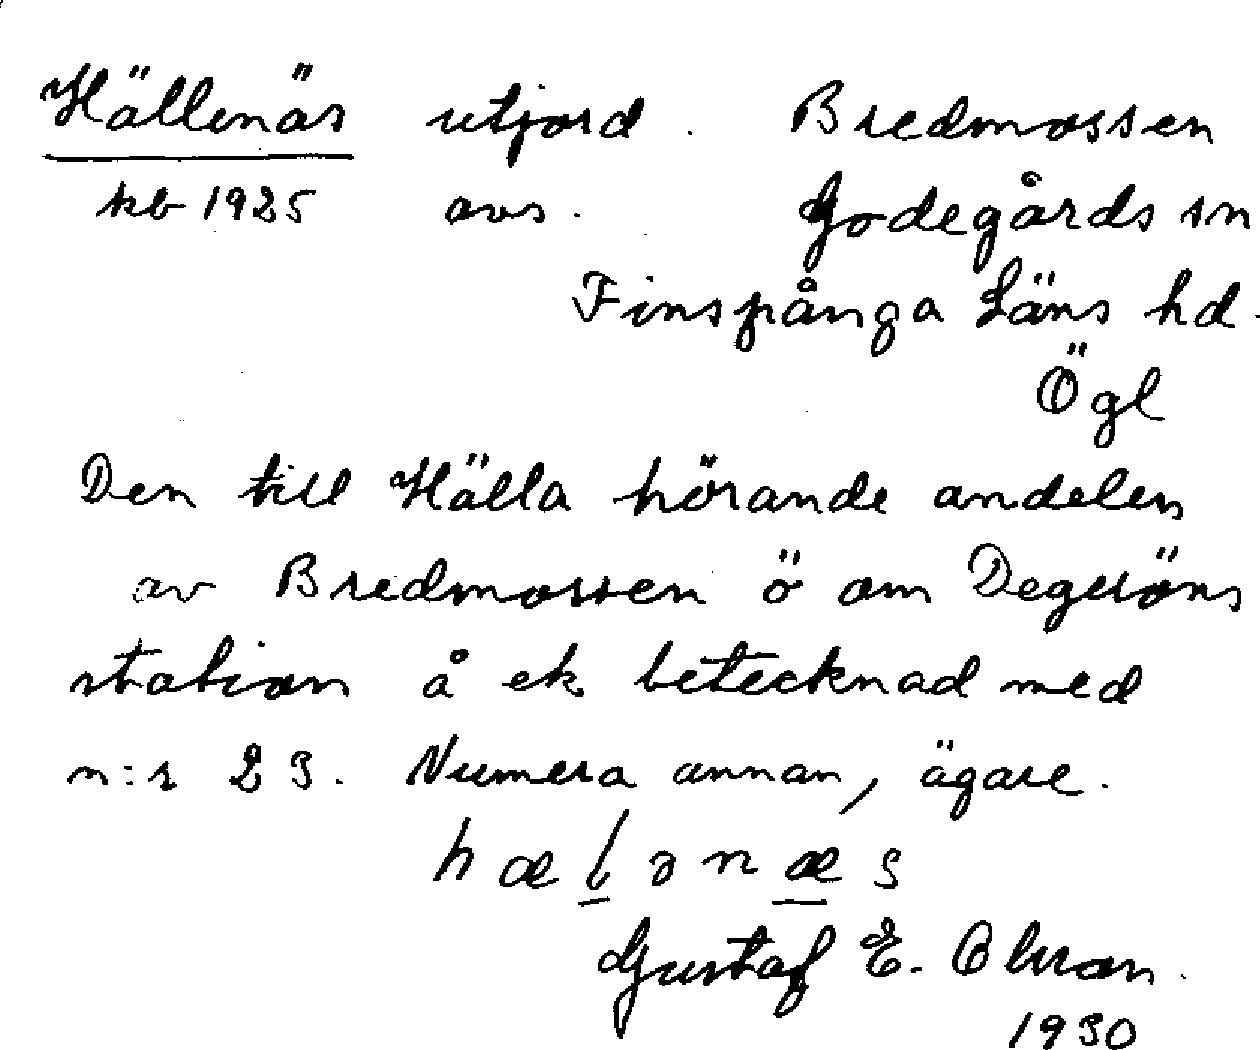 Hällenäs utjord. Bredmossen
kb 1925 avs. Godegårds sn
Finspånga Läns hd.
Ögl
Den till Hälla hörande andelen
av Bredmossen ö om Degeröns
station å ek betecknad med
n:r 23. Numera annan, ägare.
hælənæs
Gustaf E. Olsson.
1930